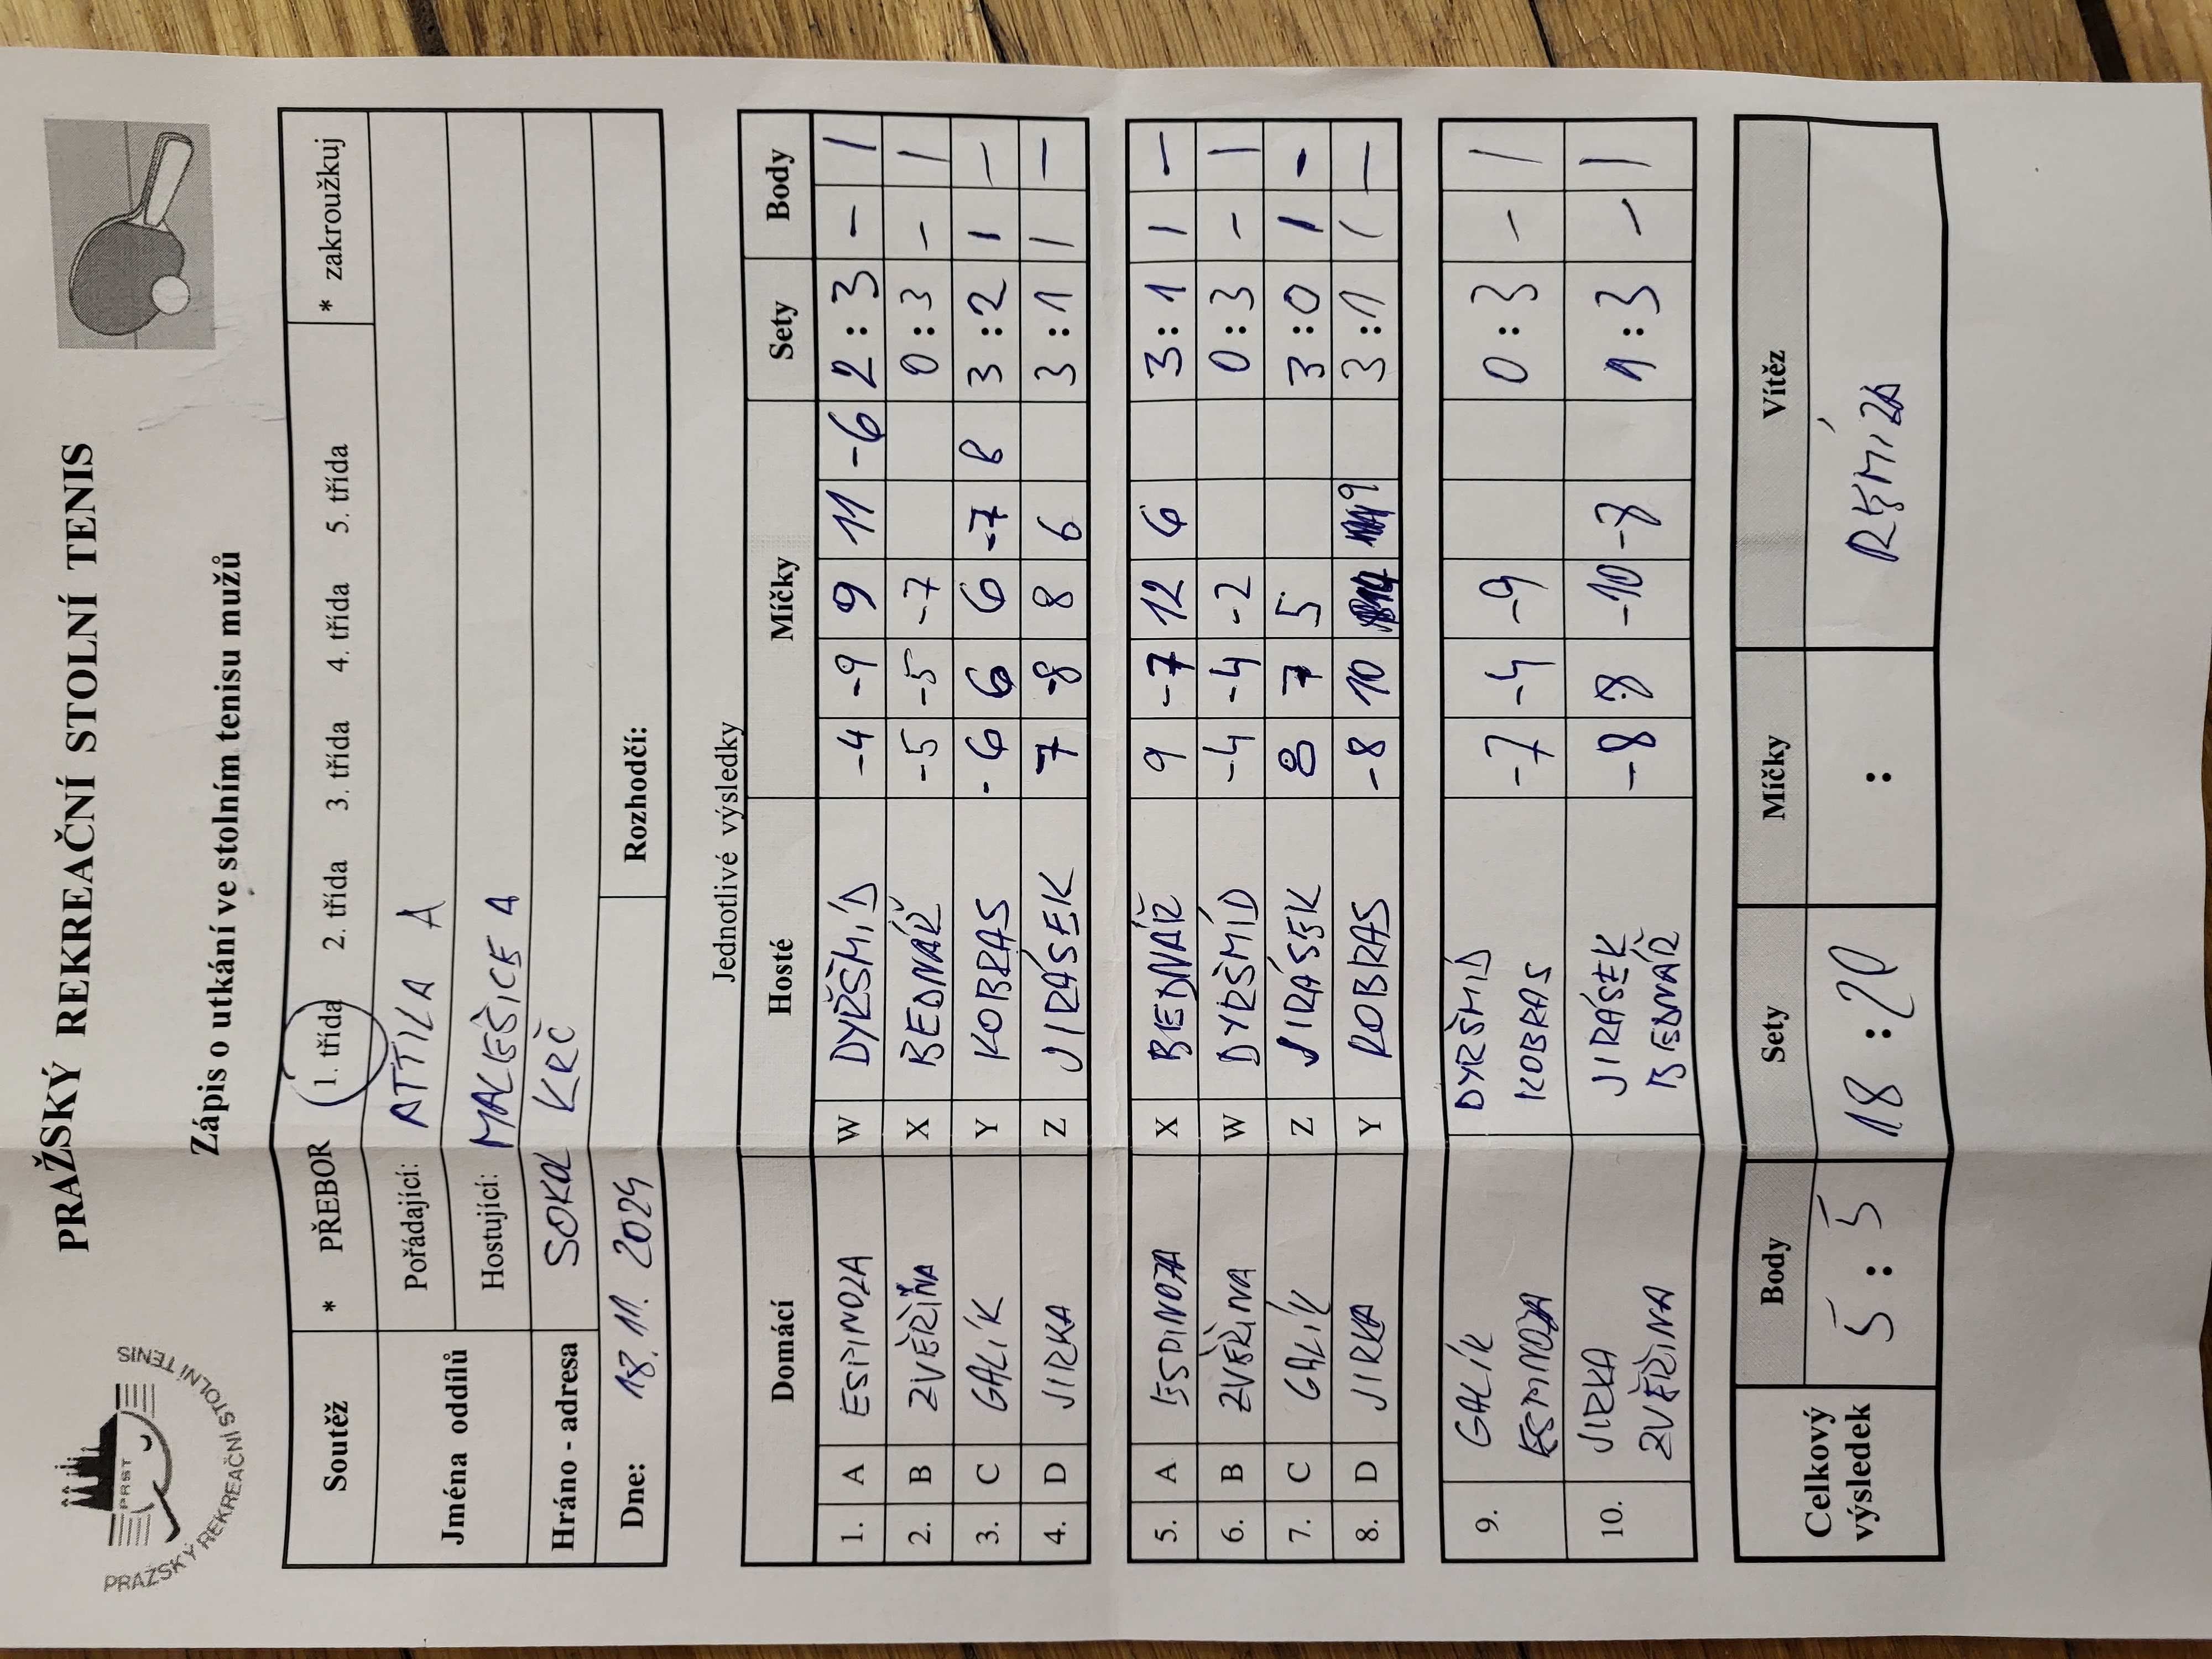 PRAŽSKÝ REKREAČNÍ STOLNÍ TENIS
PRST
PRAŽSKÝ REKREAČNÍ STOLNÍ TENIS
Zápis o utkání ve stolním tenisu mužů
Soutěž * PŘEBOR 1. třída 2. třída 3. třída 4. třída 5. třída * zakroužkuj
Jména oddílů Pořádající: ATTILA A
Hostující: MALEŠICE A
Hráno - adresa SOKOL KRČ
Dne: 18. 11. 2024 Rozhodčí:
Jednotlivé výsledky
Domácí Hosté Míčky Sety Body
1. A ESPINOZA W DYRŠMÍD -4 -9 9 11 -6 2 : 3 - 1
2. B ZVĚŘINA X BEDNÁŘ -5 -5 -7 0 : 3 - 1
3. C GALÍK Y KOBRAS -6 6 6 -7 8 3 : 2 1 -
4. D JIRKA Z JIRÁSEK 7 -8 8 6 3 : 1 1 -
5. A ESPINOZA X BEDNÁŘ 9 -7 12 6 3 : 1 1 -
6. B ZVĚŘINA W DYRŠMÍD -4 -4 -2 0 : 3 - 1
7. C GALÍK Z JIRÁSEK 8 7 5 3 : 0 1 -
8. D JIRKA Y KOBRAS -8 10 9 3 : 1 1 -
9. GALÍK DYRŠMÍD -7 -4 -9 0 : 3 - 1
ESPINOZA KOBRAS
10. JIRKA JIRÁSEK -8 8 -10 -8 1 : 3 - 1
ZVĚŘINA BEDNÁŘ
Celkový výsledek Body Sety Míčky Vítěz
5 : 5 18 : 20 : REMÍZA